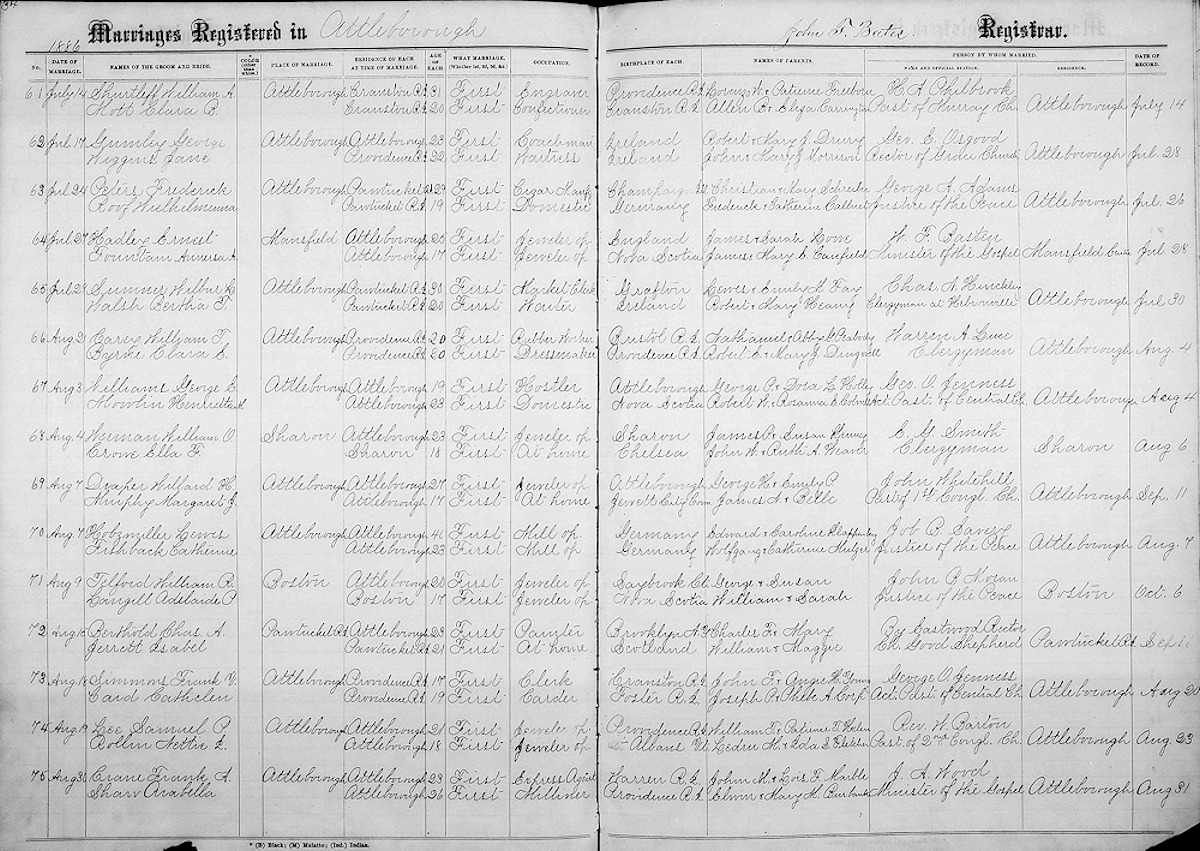 Marriages Registered in Attleborough
John F. Registrar.
1886
No. DATE OF MARRIAGE. NAMES OF THE GROOM AND BRIDE. COLOR (other than white.) PLACE OF MARRIAGE. RESIDENCE OF EACH AT TIME OF MARRIAGE. AGE OF EACH. WHAT MARRIAGE, (Whether 1st, 2d, 3d, &c.) OCCUPATION. BIRTHPLACE OF EACH. NAMES OF PARENTS. PERSON BY WHOM MARRIED. NAME AND OFFICIAL STATION. RESIDENCE. DATE OF RECORD.
61 July 14 Shurtleff William A. Attleborough Cranston R.I. 31 First Engraver Providence R.I. W. & Patience H. A. Philbrook Attleborough July 14
Mott Clara B. Cranston R.I. 20 First Cranston R.I. Allen B. & Eliza Past. of Murray Ch.
62 Jul. 17 Gumley George Attleborough Attleborough 23 First Coachman Ireland Robert & Mary J. Drury Geo. E. Osgood Attleborough Jul. 28
Wiggins Jane Providence R.I. 22 First Waitress Ireland John & Mary J. Morrison Rector of Grace Church
63 Jul 24 Peters Frederick Attleborough Pawtucket 29 First Cigar Christian & Mary George A. Adams Attleborough Jul. 26
Roof Pawtucket R.I. 19 First Domestic Germany Frederick & Catherine Justice of the Peace
64 Jul 27 Hadley Ernest Mansfield Attleborough First Jeweler op. England James & Sarah Lowe W. F. Mansfield Jul. 28
Fountain Attleborough 17 First Jeweler op. Nova Scotia James & Mary E. Canfield Minister of the Gospel
65 Jul 29 Sumner Wilbur Attleborough Pawtucket R.I. 30 First Market Clerk Grafton & Emily H. Fay Chas. H. Hinckley Attleborough Jul. 30
Walsh Bertha T. Pawtucket R.I. 20 First Waiter Ireland Robert & Mary Clergyman at Hebronville
66 Aug 2 Carey William T. Attleborough Providence R.I. 20 First Rubber Worker Bristol R.I. Nathaniel & Abby Warren A. Attleborough Aug. 4
Byrne Clara E. Providence R.I. 20 First Dressmaker Providence R.I. Robert E. & Mary J. Clergyman
67 Aug 3 Williams George E. Attleborough Attleborough 19 First Hostler Attleborough George P. & Dora L. Geo. O. Jenness Attleborough Aug 4
Attleborough 23 First Domestic Nova Scotia Robert W. Rosanna E. Act. Past. of Central Ch.
68 Aug. 4 William O. Sharon Attleborough 23 First Jeweler op. Sharon James & Susan E. G. Smith Sharon Aug 6
Crowe Ella F. Sharon 18 First At home Chelsea John W. & Ruth A. Weaver Clergyman
69 Aug 7 Draper Willard H. Attleborough Attleborough 27 First Jeweler op. Attleborough George H. & Emily P. John Whitehill Attleborough Sep. 11
Murphy Margaret J. Attleborough 17 First At home Jewett City Conn James A. & Belle Past. of 1st Congl. Ch.
70 Aug 7 Lewis Attleborough Attleborough First Mill op. Germany Edward & Caroline Job B. Savery Attleborough Aug. 7
Fishback Catherine Attleborough 23 First Mill op Germany Wolfgang & Catherine Justice of the Peace
71 Aug 9 Telford William R. Boston Attleborough First Jeweler op. Saybrook Ct. George & Susan John P. Moran Boston Oct. 6
Cargill Adelaide P. Boston 17 First Jeweler op. Nova Scotia William & Sarah Justice of the Peace
72 Aug Berthold Chas. A. Pawtucket R.I. Attleborough 23 First Painter Brooklyn N.Y. Charles F. & Mary By Eastwood Rector Pawtucket R.I. Sep
Jerrett Isabel Pawtucket R.I. 21 First At home Scotland William & Maggie Ch. Good Shepherd
73 Aug Simmons Frank V. Attleborough Providence R.I. 17 First Clerk Cranston R.I. John F. & Angie H. Young George O. Jenness Attleborough Aug 20
Card Cathelen Providence R.I. 19 First Carder Foster R.I. Joseph P. & Phebe A. Act. Past. of Central Ch.
74 Aug 19 Lee Samuel P. Attleborough Attleborough 21 First Jeweler op Providence R.I. William F. & Rev. W. Barton Attleborough Aug. 23
Rollin Nettie L. Attleborough 18 First Jeweler op. St. Albans Vt. Past. of 2nd Congl. Ch.
75 Aug 30 Crane Frank A. Attleborough Attleborough 23 First Express Agent Warren R.I. John M. & Lois F. Marble J. A. Wood Attleborough Aug 31
Shaw Arabella Attleborough 26 First Milliner Providence R.I. & Mary M. Burbank Minister of the Gospel
* (B) Black; (M) Mulatto; (Ind.) Indian.